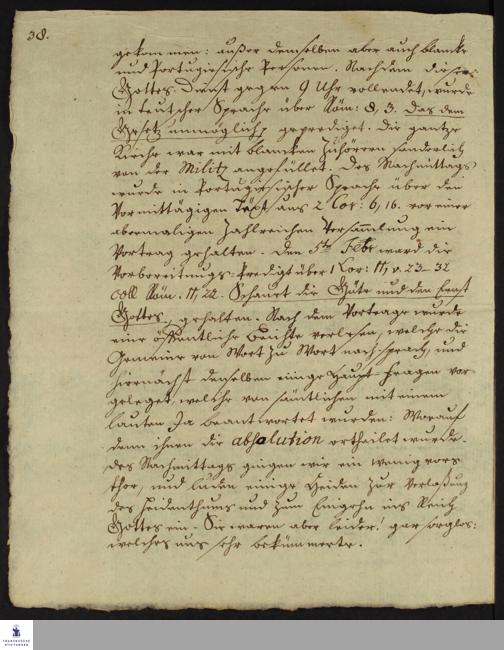 38.
gekommen: außer demselben aber auch blancke
und Portugiesische Personen. Nachdem dieser
Gottes-Dienst gegen 9 Uhr vollendet, wurde
in teutscher Sprache über Röm: 8, 3. Das dem
Gesetz unmöglich, geprediget. Die gantze
Kirche war mit blancken Zuhörern sonderlich
von der Militz angefüllet. Des Nachmittags
wurde in Portugiesischer Sprache über den
Vormittägigen Text aus 2 Cor: 6, 16. vor einer
abermaligen zahlreichen Versamlung ein
Vortrag gehalten. Den 5ten Febr ward die
Vorbereitungs-Predigt über 1 Cor: 11, v. 23-32
coll Röm. 11, 22. Schauet die Güte und den Ernst
Gottes, gehalten. Nach dem Vortrage wurde
eine öffentliche Beichte verlesen, welche die
Gemeine von Wort zu Wort nachsprach, und
hiernächst denselben einige Haupt-Fragen vor-
geleget welche von sämtlichen mit einem
lauten Ja beantwortet wurden: Worauf
denn ihnen die absolution ertheilet wurde.
Des Nachmittags gingen wir ein wenig vors
Thor, und luden einige Heiden zur Verlaßung
des Heidenthums und zum Eingehn ins Reich
Gottes ein. Sie waren aber leider! gar sorglos:
welches uns sehr bekümmerte.
FRANCKESCHE
STIFTUNGEN